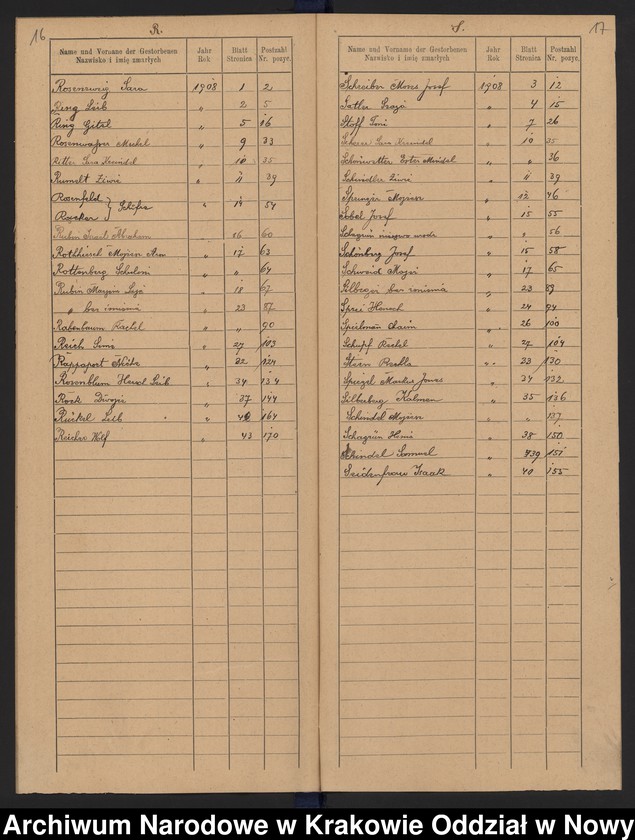 16
R.
Name und Vorname der Gestorbenen
Nazwisko i imię zmarłych
Jahr
Rok
Blatt
Stronica
Postzahl
Nr. pozyc.
Rosenzweig Sara 1908 1 2
Ring Leib " 2 5
Ring Gitel " 5 16
Rosenwasser Mechel " 9 33
Ritter Sara Kreindel " 10 35
Rumelt Ziwie " 11 39
Rosenfeld
Roecker } Schifre " 14 54
Rubin Israel Abraham 16 60
Rothhirsch Mojżesz Aron " 17 63
Rottenberg " " 64
Rubin Marjem " 18 67
" bez imienia " 23 87
Rabenbaum Rachel " " 90
Reich " 27 103
Rappaport " 32 124
Rosenblum Leib " 34 134
Rock " 37 144
Rückel Leib " 164
Reicher Wolf " 43 170
17
S.
Name und Vorname der Gestorbenen
Nazwisko i imię zmarłych
Jahr
Rok
Blatt
Stronica
Postzahl
Nr. pozyc.
Schreiber Moses Josef 1908 3 12
Sattler " 4 15
Stoff " 7 26
Sara Kreindel " 10 35
Schönwetter Ester Mindel " " 36
Schindler Ziwie " 11 39
Sprenger Mojżesz " 12 46
Sobel Josef " 15 55
Schagrin " " 56
Schönberg Josef " 15 58
Schweid Mojżesz " 17 65
Silbiger bez imienia " 23 89
Henoch " 24 94
Speilman Chaim " 26 100
Schupf Rachel " 27 104
Stern " 23 130
Spiegel Markus Jonas " 34 132
Silberberg Kalman " 35 136
Schindel Mojżesz " " 137
Schagrin " 38 150
Schindel Samuel " 39 151
Seidenfrau Izaak " 40 155
Archiwum Narodowe w Krakowie Oddział w Nowy